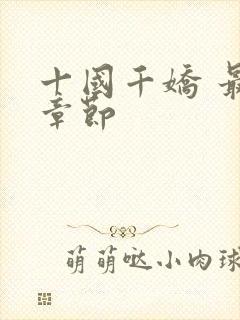 十國千嬌 最
章節
萌萌哒小肉球